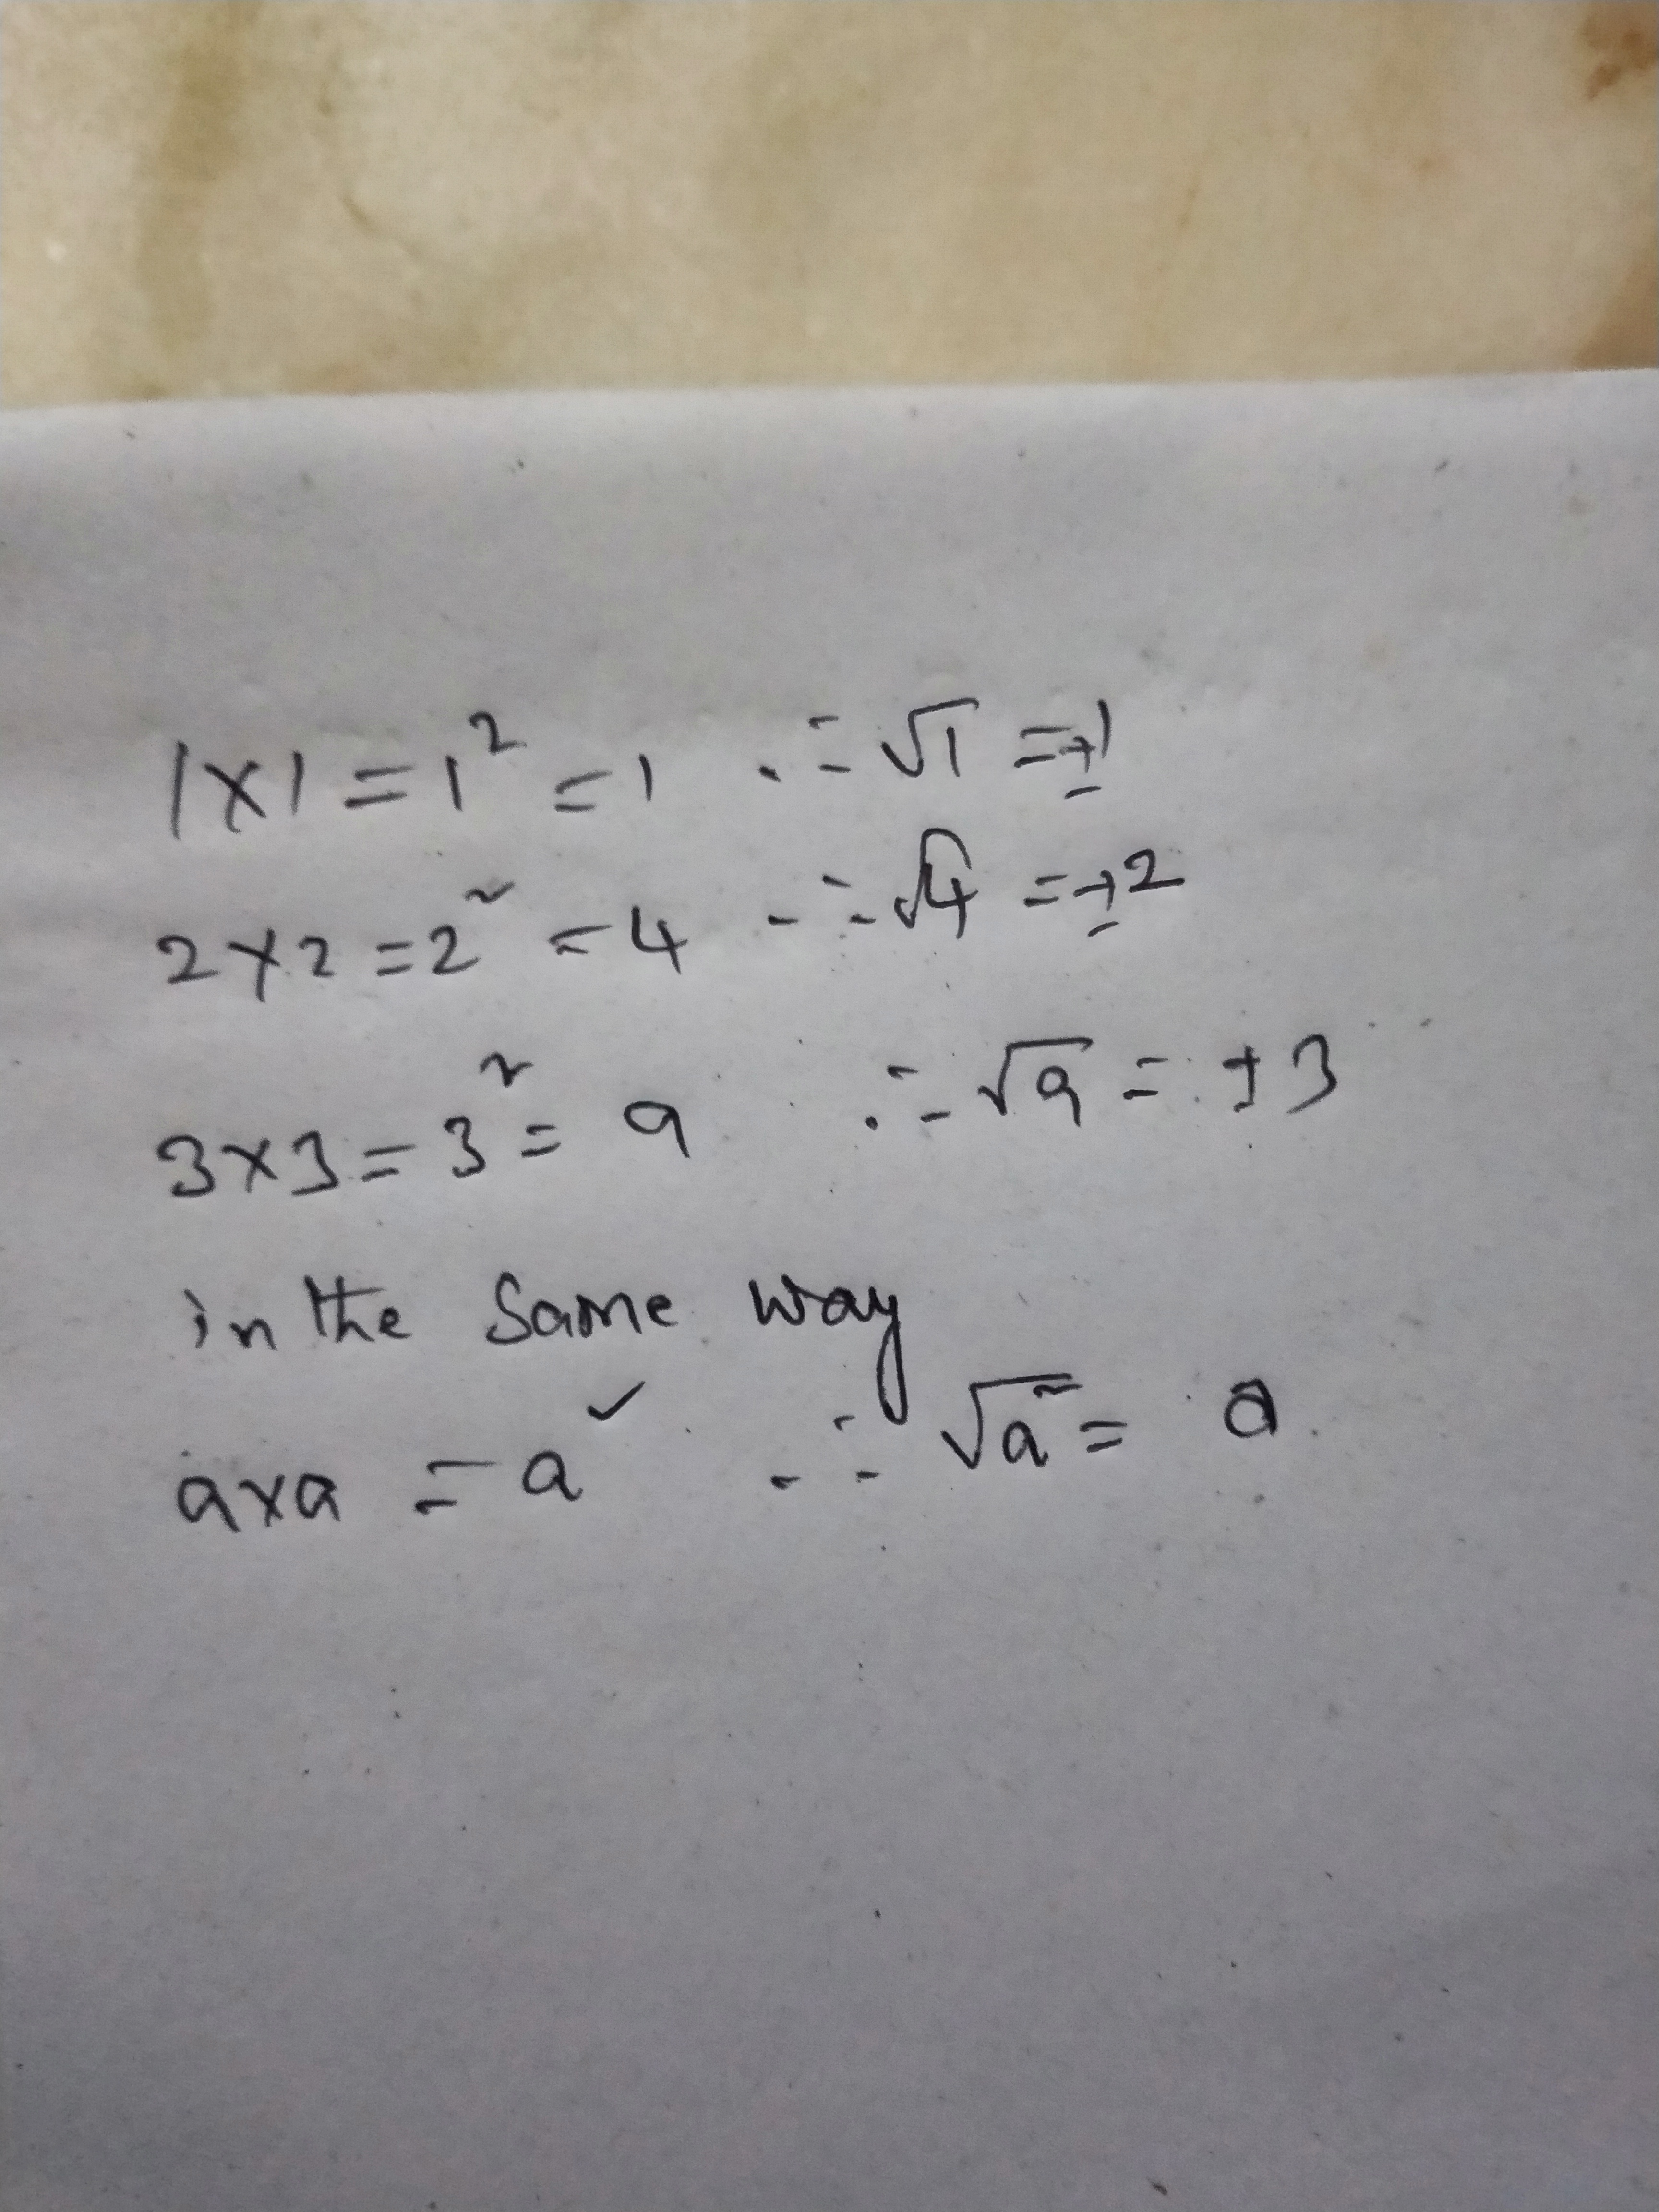 1×1=1² =1 ∴ √1 =±1
2×2=2² =4 ∴ √4 =±2
3×3=3² = 9 ∴ √9 = ±3
in the same way
a×a = a² ∴ √a² = a